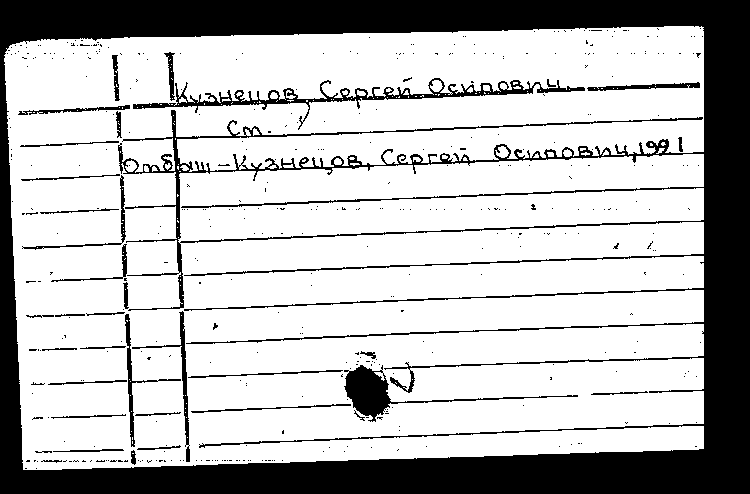 Кузнецов, Сергей Осипович.
см.
Отбыш-Кузнецов, Сергей Осипович, 1991